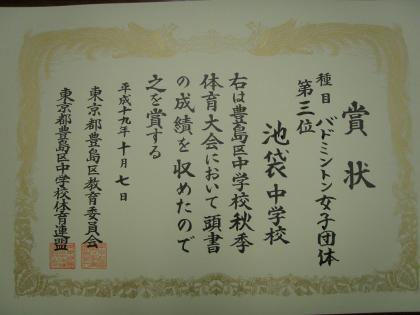 賞状
種目 バドミントン女子団体
第三位
池袋中学校
右は豊島区中学校秋季
体育大会において頭書
の成績を収めたので
之を賞する
平成十九年十月七日
東京都豊島区教育委員会
東京都豊島区中学校体育連盟